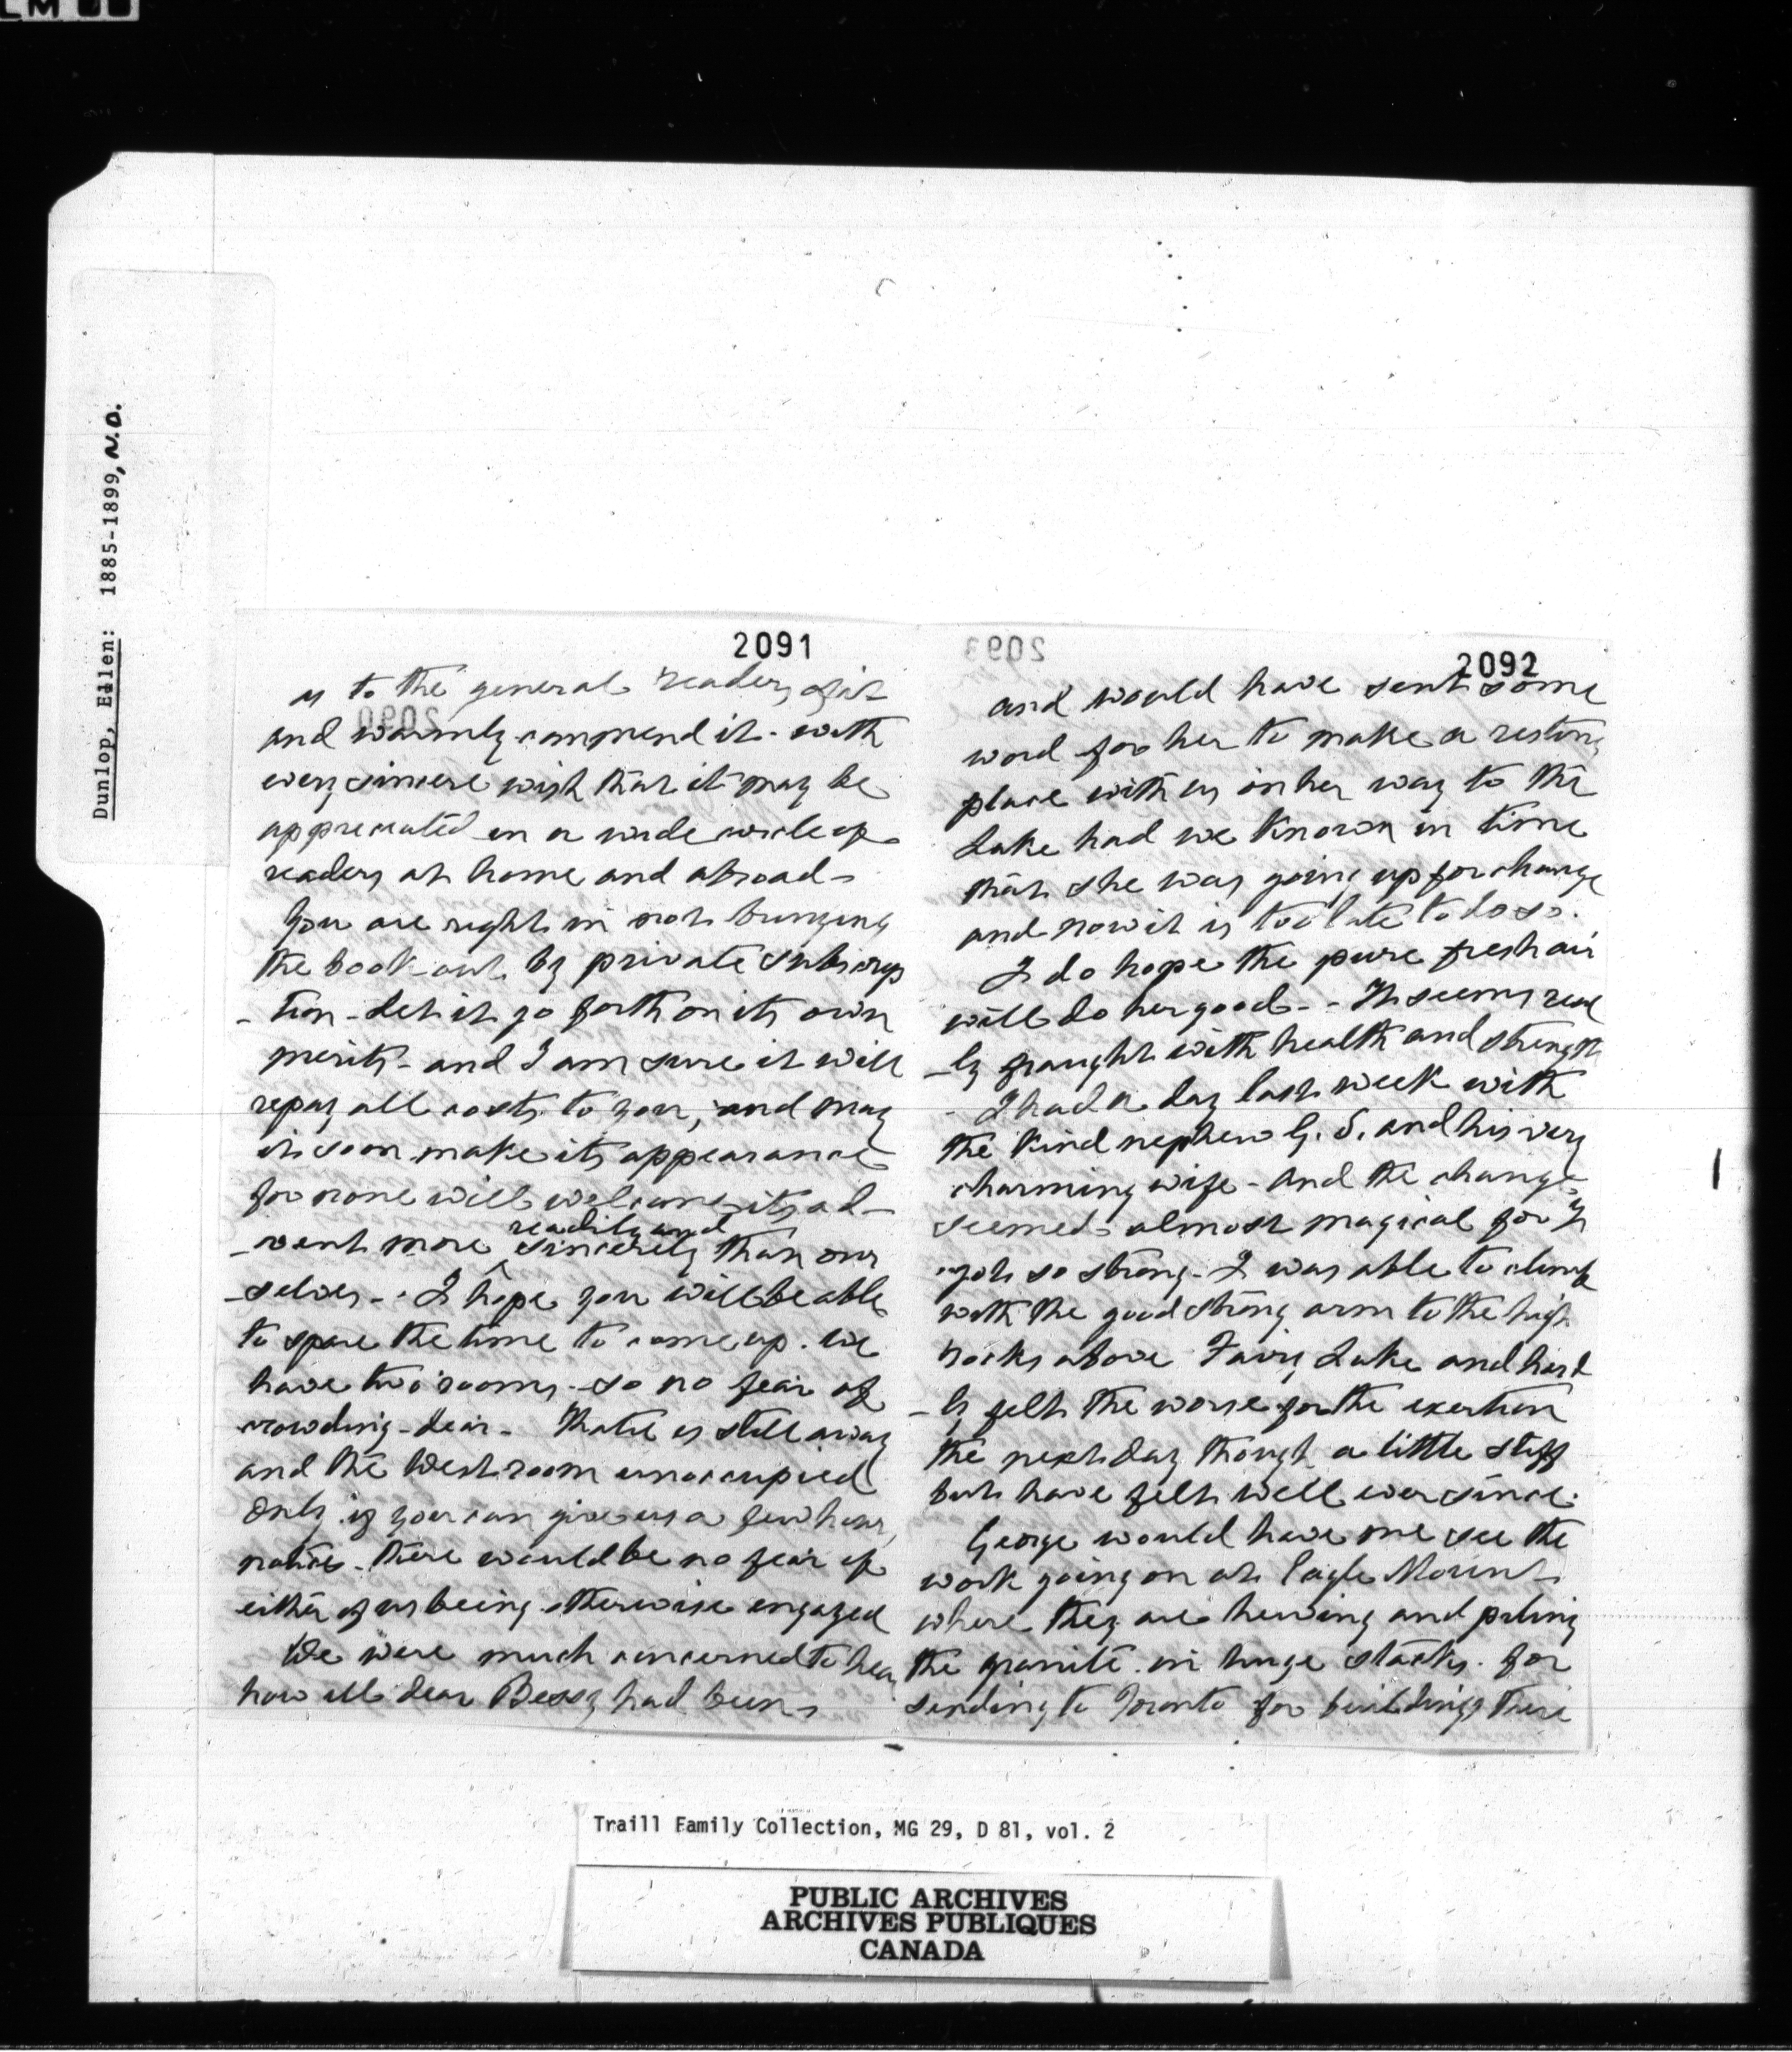 LM
Dunlop, Ellen: 1885-1899, N.D.
2091
as to the general readers of it
and warmly commend it - with
every sincere wish that it may be
appreciated in a wide circle of
readers at home and abroad -
You are right in not bringing
the book out by private subscrip
- tion - Let it go forth on its own
merits - and I am sure it will
repay all costs to you, and may
it soon make its appearance
for none will welcome its ad-
readily and
- vent more ^ sincerely than our
- selves - . I hope you will be able
to spare the time to come up . We
have two rooms - so no fear of
crowding - dear - Katie is still away
and the West room unoccupied
only if you can give us a few hours
notice - there would be no fear of
either of us being otherwise engaged
We were much concerned to hear
how ill dear Bessy had been
2092
and would have sent some
word for her to make a resting
place with us on her way to the
Lake had we known in time
that she was going up for change
and now it is too late to do so .
I do hope the pure fresh air
will do her good - - It seems real
- ly fraught with health and strength
- I had a day last week with
the kind nephew G. S. and his very
charming wife - and the change
seemed almost magical for I
got so strong - I was able to climb
with the good strong arm to the high
rocks above Fairy Lake and hard
- ly felt the worse for the exertion
the next day though a little stiff
but have felt well ever since .
George would have me see the
work going on at Eagle Mount
where they are hewing and piling
the granite in huge stacks . for
sending to Toronto for buildings there
2093
2090
Traill Family Collection, MG 29, D 81, vol. 2
PUBLIC ARCHIVES
ARCHIVES PUBLIQUES
CANADA